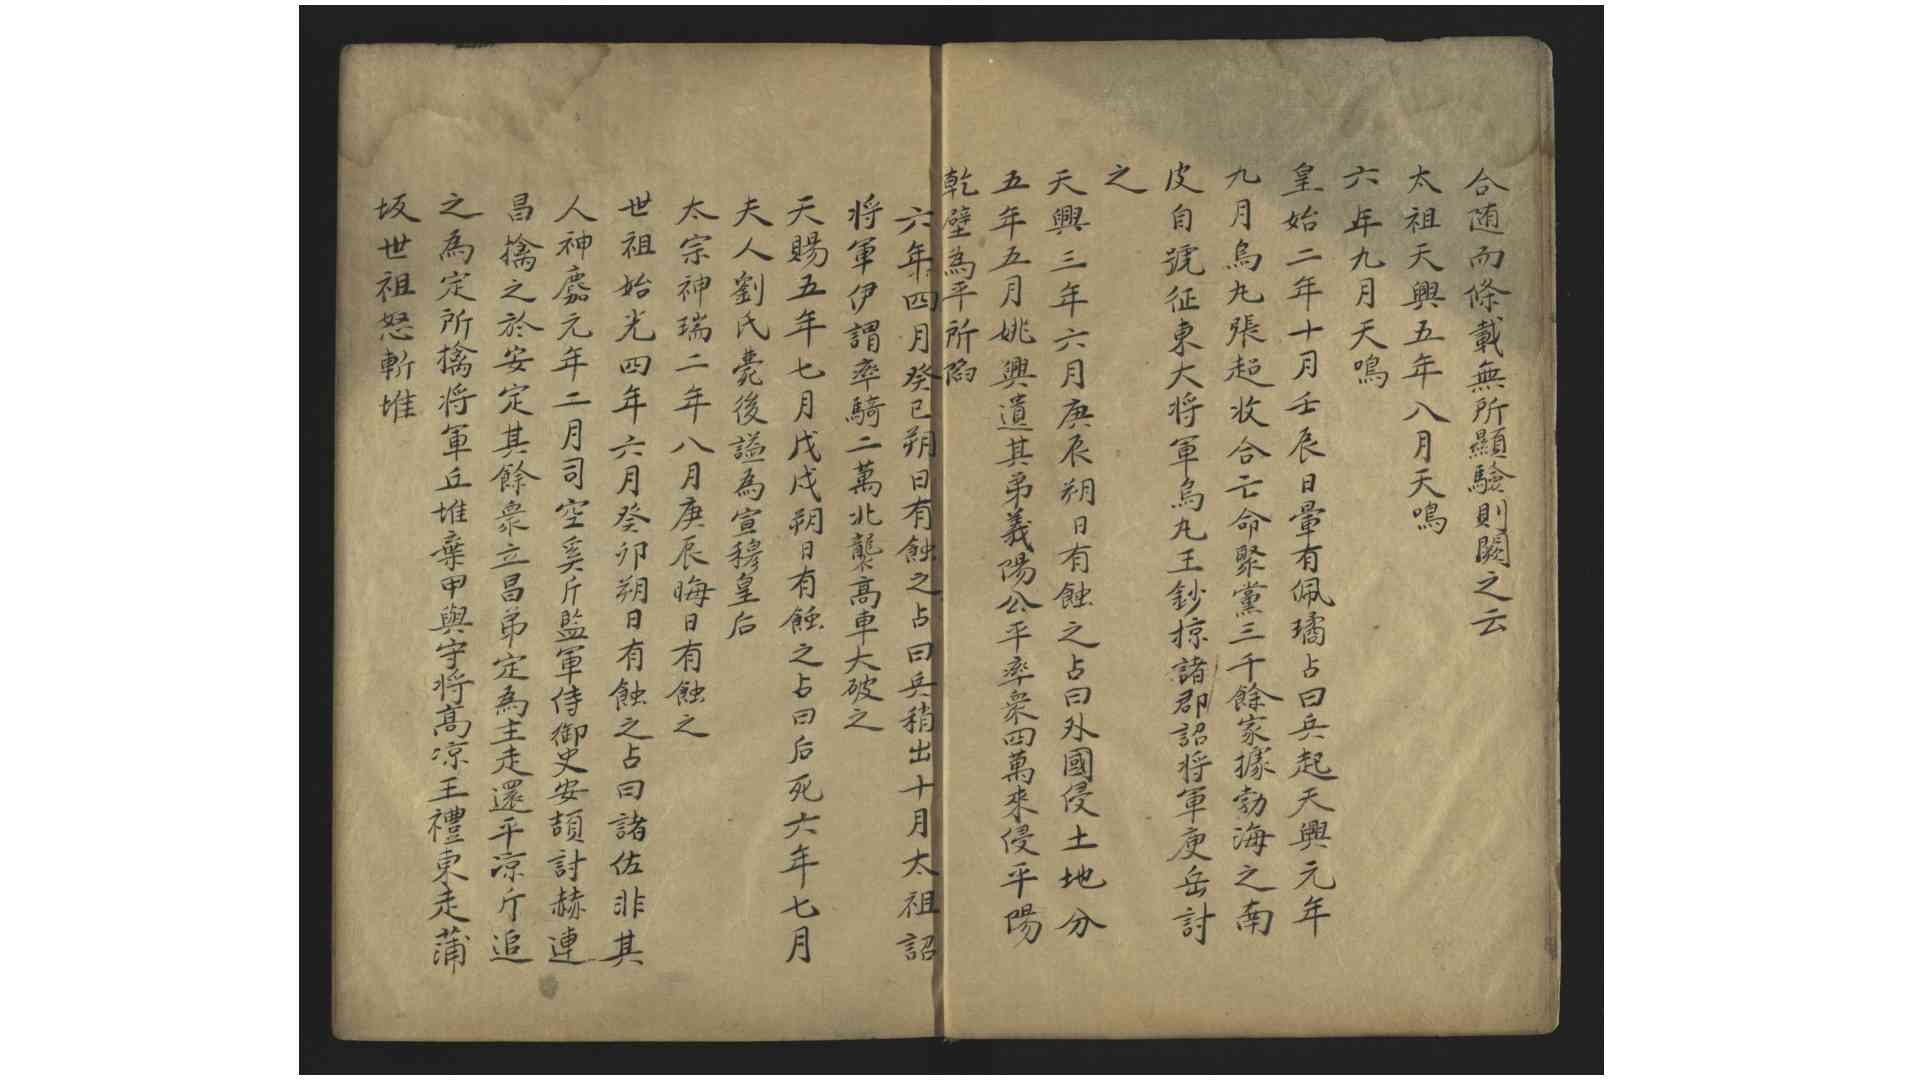 合随而條載無所顯驗則闕之云
太祖天興五年八月天鳴
六年九月天鳴
皇始二年十月壬辰日暈有佩璚占曰兵起天興元年
九月烏丸張超收合亡命聚黨三千餘家據勃海之南
皮自號征東大将軍烏丸王鈔掠諸郡詔将軍庾岳討
之
天興三年六月庚辰朔日有蝕之占曰外國侵土地分
五年五月姚興遣其弟義陽公平率衆四萬來侵平陽
乾壁為平所陷
六年四月癸巳朔日有蝕之占曰兵稍出十月太祖詔
将軍伊謂率騎二萬北襲高車大破之
天賜五年七月戊戌朔日有蝕之占曰后死六年七月
夫人劉氏薨後謚為宣穆皇后
太宗神瑞二年八月庚辰晦日有蝕之
世祖始光四年六月癸卯朔日有蝕之占曰諸佐非其
人神䴥元年二月司空奚斤監軍侍御史安頡討赫連
昌擒之於安定其餘衆立昌弟定為主走還平凉斤追
之為定所擒将軍丘堆棄甲與守将高凉王禮東走蒲
坂世祖怒斬堆